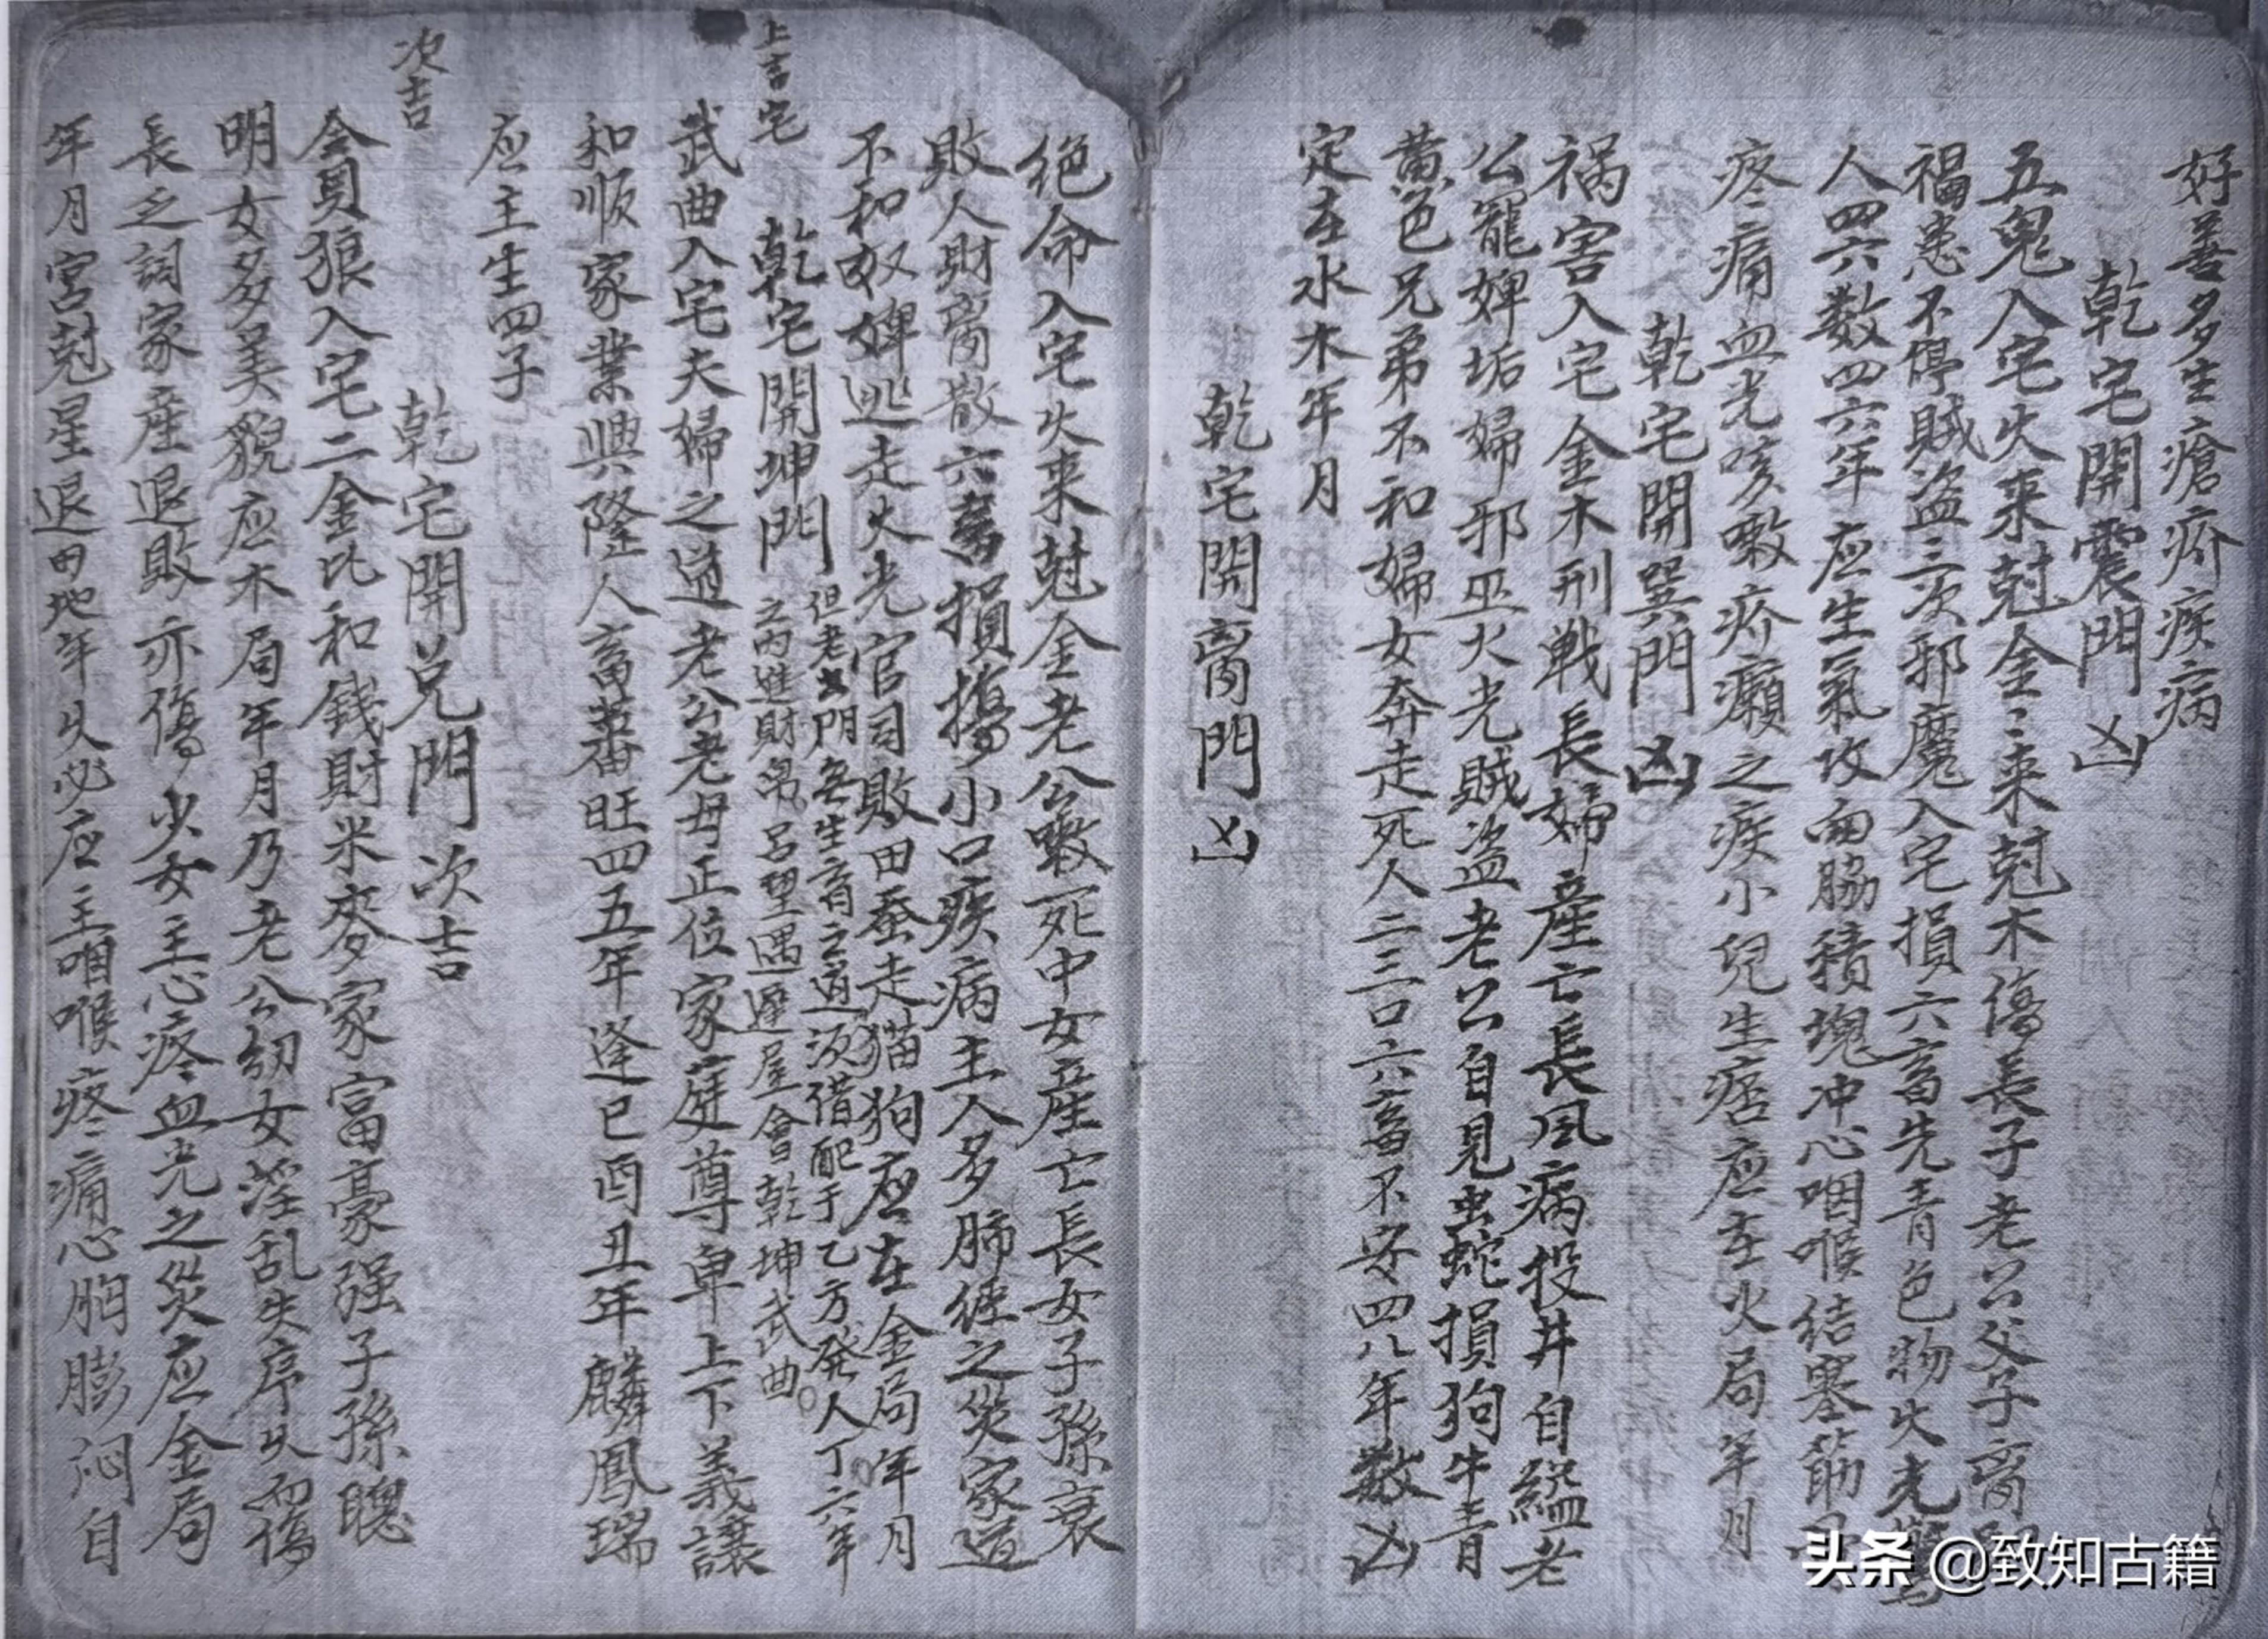 好善多生瘡疥疾病
乾宅開震門凶
五鬼入宅火来尅金二来尅木傷長子老公父子离
福患不停賊盗三次邪魔入宅損六畜先青色物火光
人四六数四六年应生氣攻両脇積塊冲心咽喉结塞筋
疼痛血光咳嗽疥癩之疾小兒生痞应在火局年月
乾宅開巽門凶
禍害入宅金木刑戦長婦産亡長風病投井自縊老
公寵婢垢婦邪巫火光賊盗老公自見虫蛇損狗牛青
黄色兄弟不和婦女奔走死人二三口六畜不安四八年数凶
定在水木年月
乾宅開离門凶
绝命入宅火来尅金老公嗽死中女産亡長女子孫衰
敗人財离散六畜損傷小口疾病主人多肺經之災家道
不和奴婢逃走火光官司敗田蚕走猫狗应在金局年月
上吉宅
乾宅開坤門
但老母門無生育之道须借配于乙方発人丁六年
之内進財帛。吕望遇遲屋會乾坤武曲。
武曲入宅夫婦之道老公老母正位家庭尊卑上下義讓
和顺家業興隆人畜蕃旺四五年逢巳酉丑年麟鳳瑞
应主生四子
次吉
乾宅開兑門次吉
貪狼入宅二金比和錢財米麥家富豪强子孫聰
明女多美貌应木局年月乃老公纫女淫乱失序久而傷
長之詞家産退敗亦傷少女主心疼血光之災应金局
年月宮尅星退田地年久必应主咽喉疼痛心胸膨闷自
头条 @致知古籍